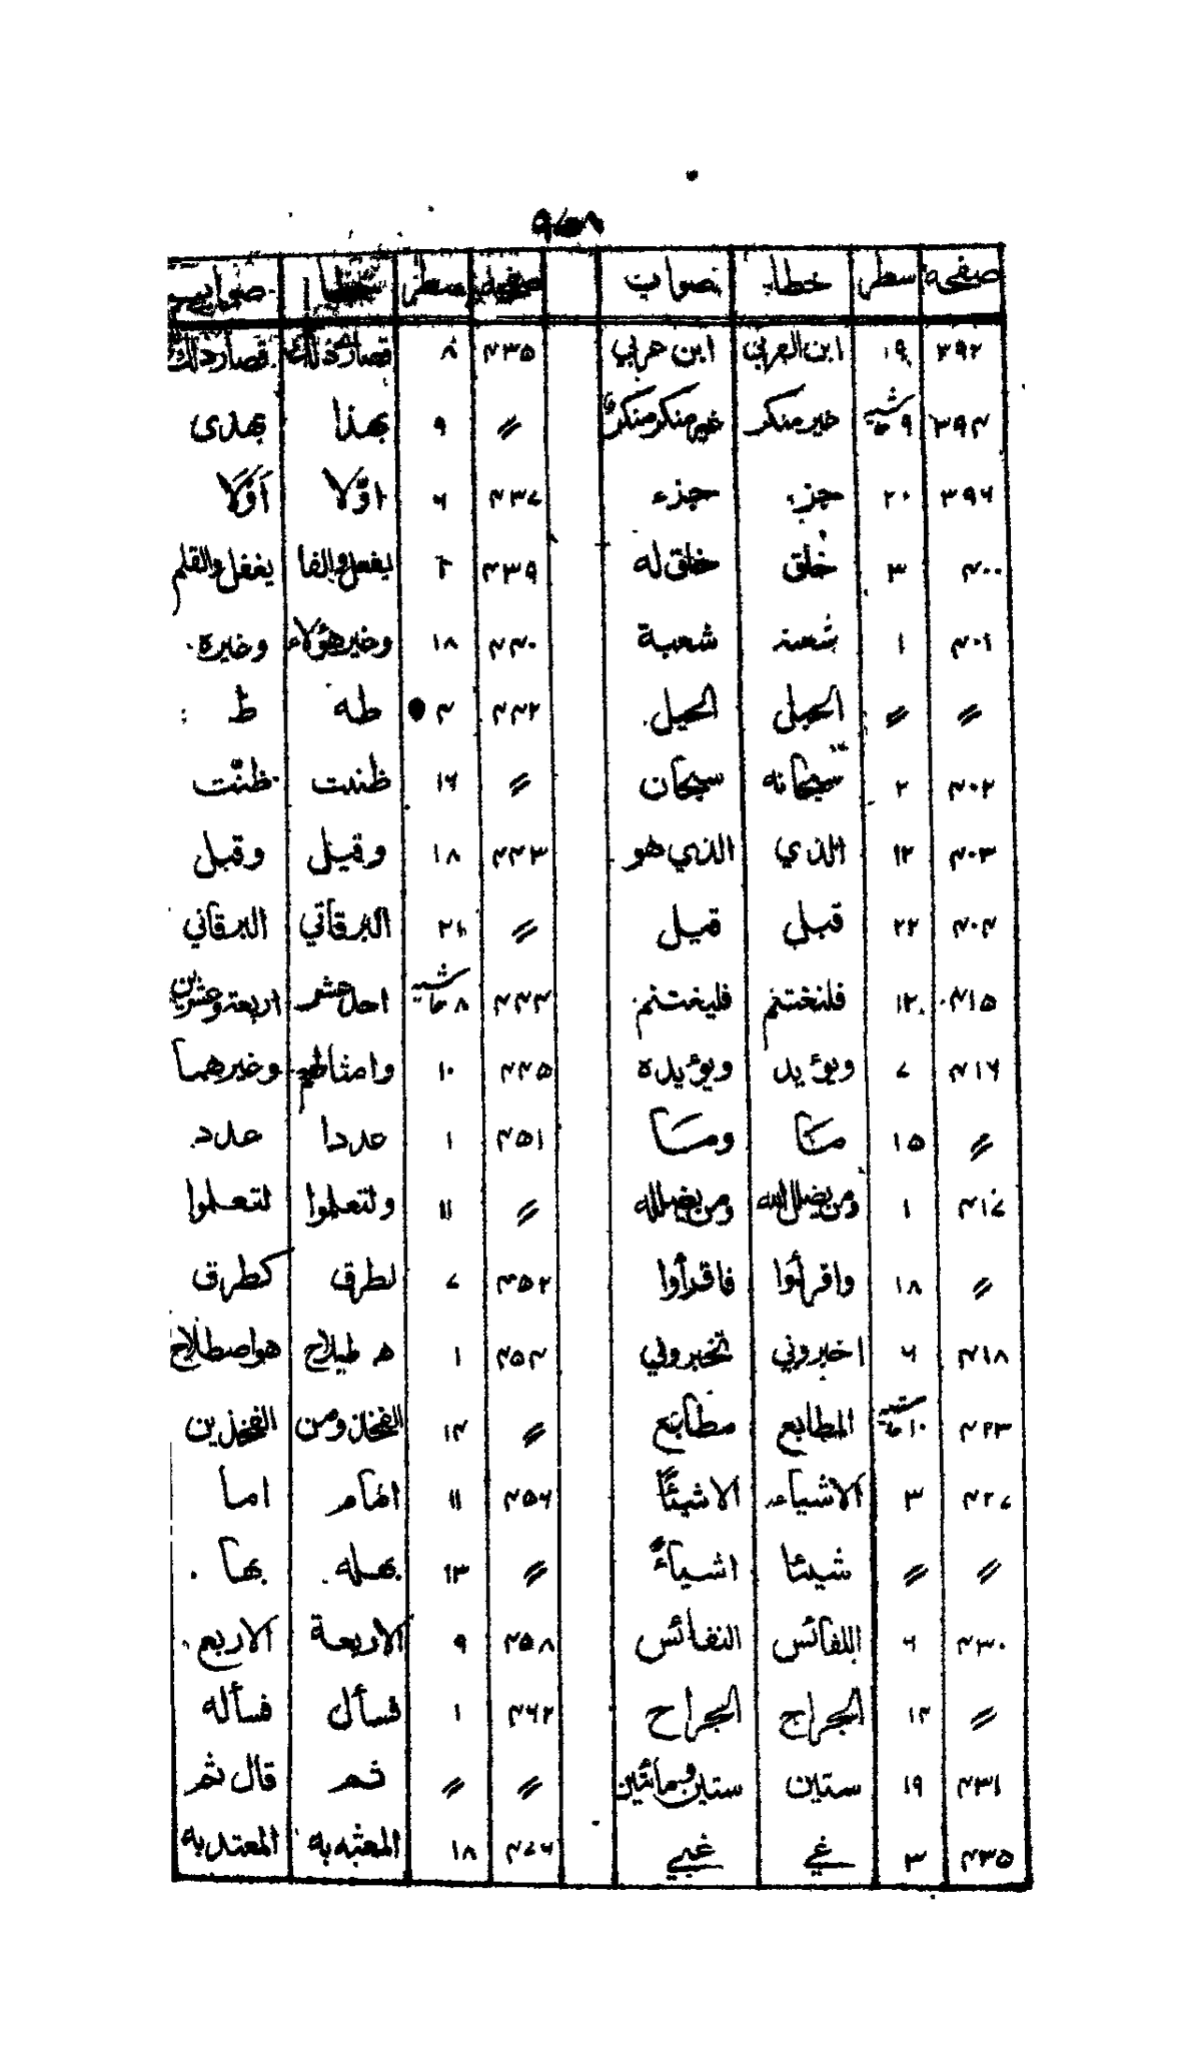 صفحه سطر خطاء صواب صفحه سطر خطا صواب
٣٩٢ ١٩ ابن العربي ابن عربي ٤٣٥ ٨ قصار ذلك
٣٩٤ ٩ خير منكر غير منكر منكر 〃 ٩ بهذا بهدى
٣٩٦ ٢٠ جزء ٤٣٧ ٦ اوّلا أوّلا
٤٠٠ ٣ خلق خلق له ٤٣٩ يغفل والقلم
٤٠١ ١ شعبة ٤٤٠ ١٨ وغير هؤلاء وغيره
〃 〃 الحبلى الحيل ٤٤٢ ٤ طه ط
٤٠٢ ٢ سبحانه سبحان 〃 ١٦ ظننت ظنّت
٤٠٣ ١٢ الذي الذي هو ٤٤٣ ١٨ وقيل وقبل
٤٠٤ ٢٢ قبل قيل 〃 ٢١ البرقاتي البرقاني
٤١٥ ١٢ فلنغتنم فليغتنم ٤٤٤ ٨ احد عشر اربعة وعشرين
٤١٦ ٧ ويؤيد ويؤيده ٤٤٥ ١٠ وامثالهم وغيرهما
〃 ١٥ منا ومنا ٤٥١ ١ عددا عدد
٤١٧ ١ ومن يضلل الله ومن يضلله 〃 ١١ ولتعلموا لتعلموا
〃 ١٨ واقرأوا فاقرأوا ٤٥٢ ٧ لطرق كطرق
٤١٨ ٦ اخبروني تخبروني ٤٥٤ ١ هو اصطلاح
٤٢٣ ١٠ المطابع مطابع 〃 ١٤ الفخذ ومن الفخذين
٤٢٧ ٣ الاشياء الاشيئًا ٤٥٦ ١١ اما
〃 〃 شيئا اشياءً 〃 ١٣ بهله بها
٤٣٠ ٦ اللفائس النفائس ٤٥٨ ٩ الاربعة الاربع
〃 ١٤ الجراج الجراح ٤٦٢ ١ فسأل فسأله
٤٣١ ١٩ ستين ستين ومائتين 〃 〃 ثم قال ثم
٤٣٥ ٣ غي غيي ٤٧٦ ١٨ المعتد به